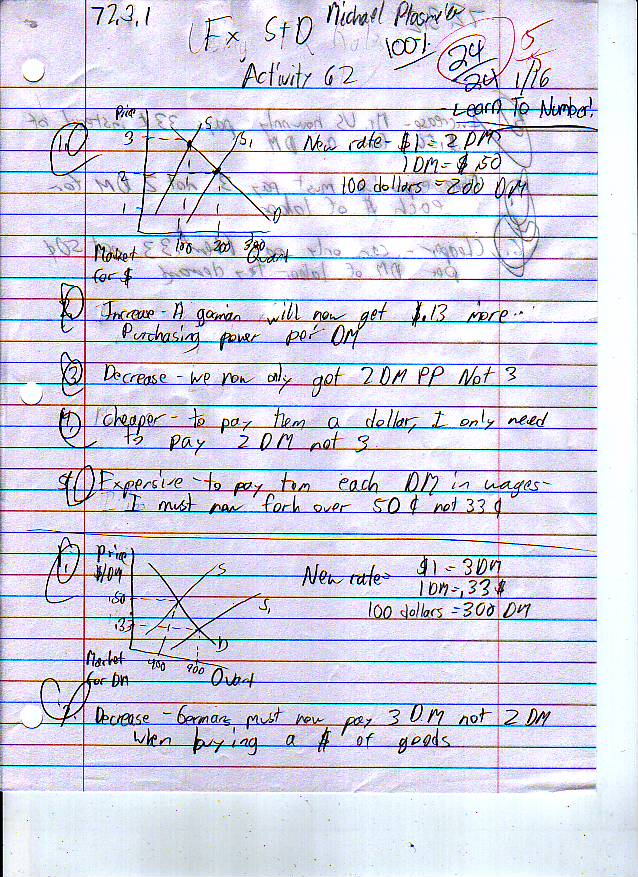 72.3.1
Michael
Ex S+D
100%
24/24
5
Activity 62
1/16
Learn To Number!
1.
Price
S
S1
3
2
1
D
100 200 300
Market for $
Quant
New rate - $1 = 2 DM
1 DM = $.50
100 dollars = 200 DM
2. Increase - A german will now get $.13 more..
Purchasing power per DM
3. Decrease - we now only get 2 DM PP Not 3
4. cheaper - to pay them a dollar, I only need
to pay 2 DM not 3
5. Expensive - to pay them each DM in wages -
I must now fork over 50 ¢ not 33 ¢
1.
Price
$/DM
S
S1
.50
.33
D
400 900
Market
for DM
Quant
New rate = $1 = 3 DM
1 DM = .33 $
100 dollars = 300 DM
2. Decrease - Germans must now pay 3 DM not 2 DM
when buying a $ of goods